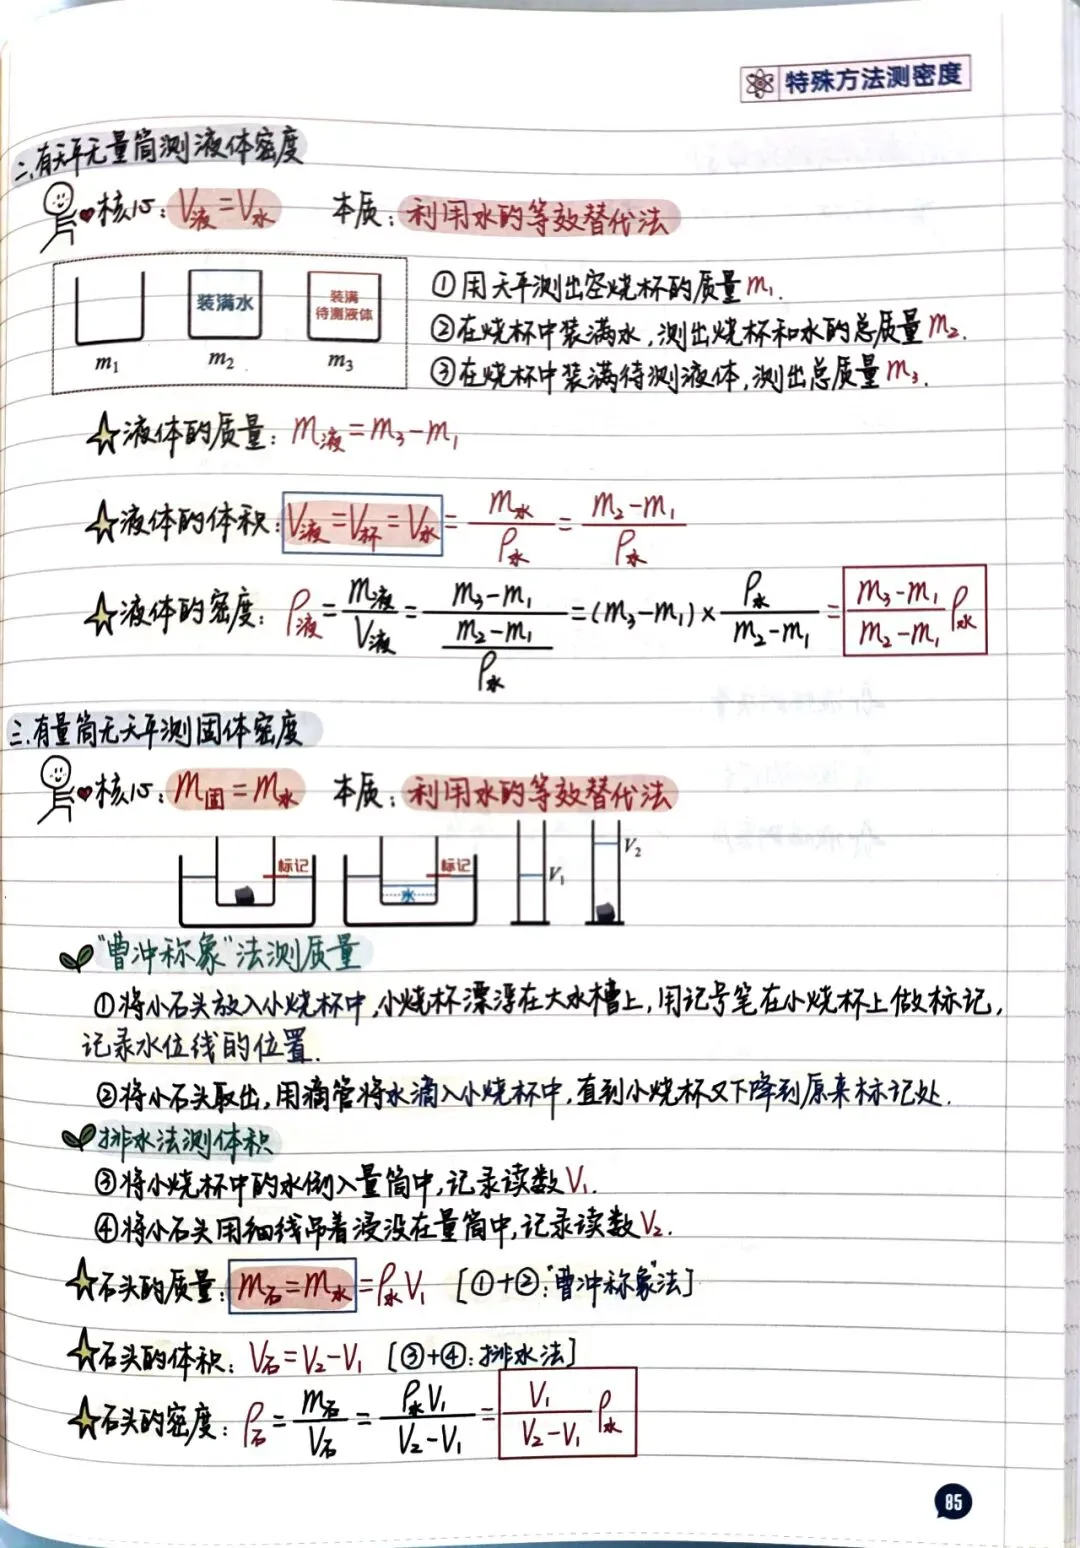 特殊方法测密度
二.有天平无量筒测液体密度
核心:V液=V水 本质:利用水的等效替代法
装满水
装满
待测液体
m₁ m₂ m₃
①用天平测出空烧杯的质量m₁.
②在烧杯中装满水,测出烧杯和水的总质量m₂.
③在烧杯中装满待测液体,测出总质量m₃.
☆液体的质量:m液=m₃-m₁
☆液体的体积:V液=V杯=V水=m水/ρ水=(m₂-m₁)/ρ水
☆液体的密度:ρ液=m液/V液=(m₃-m₁)/((m₂-m₁)/ρ水)=(m₃-m₁)×ρ水/(m₂-m₁)=(m₃-m₁)/(m₂-m₁)ρ水
三.有量筒无天平测固体密度
核心:m固=m水 本质:利用水的等效替代法
标记 水 标记 V₁ V₂
"曹冲称象"法测质量
①将小石头放入小烧杯中,小烧杯漂浮在大水槽上,用记号笔在小烧杯上做标记,
记录水位线的位置.
②将小石头取出,用滴管将水滴入小烧杯中,直到小烧杯又下降到原来标记处.
排水法测体积
③将小烧杯中的水倒入量筒中,记录读数V₁.
④将小石头用细线吊着浸没在量筒中,记录读数V₂.
☆石头的质量:m石=m水=ρ水V₁ [①+②:"曹冲称象"法]
☆石头的体积:V石=V₂-V₁ [③+④:排水法]
☆石头的密度:ρ石=m石/V石=ρ水V₁/(V₂-V₁)=V₁/(V₂-V₁)ρ水
85